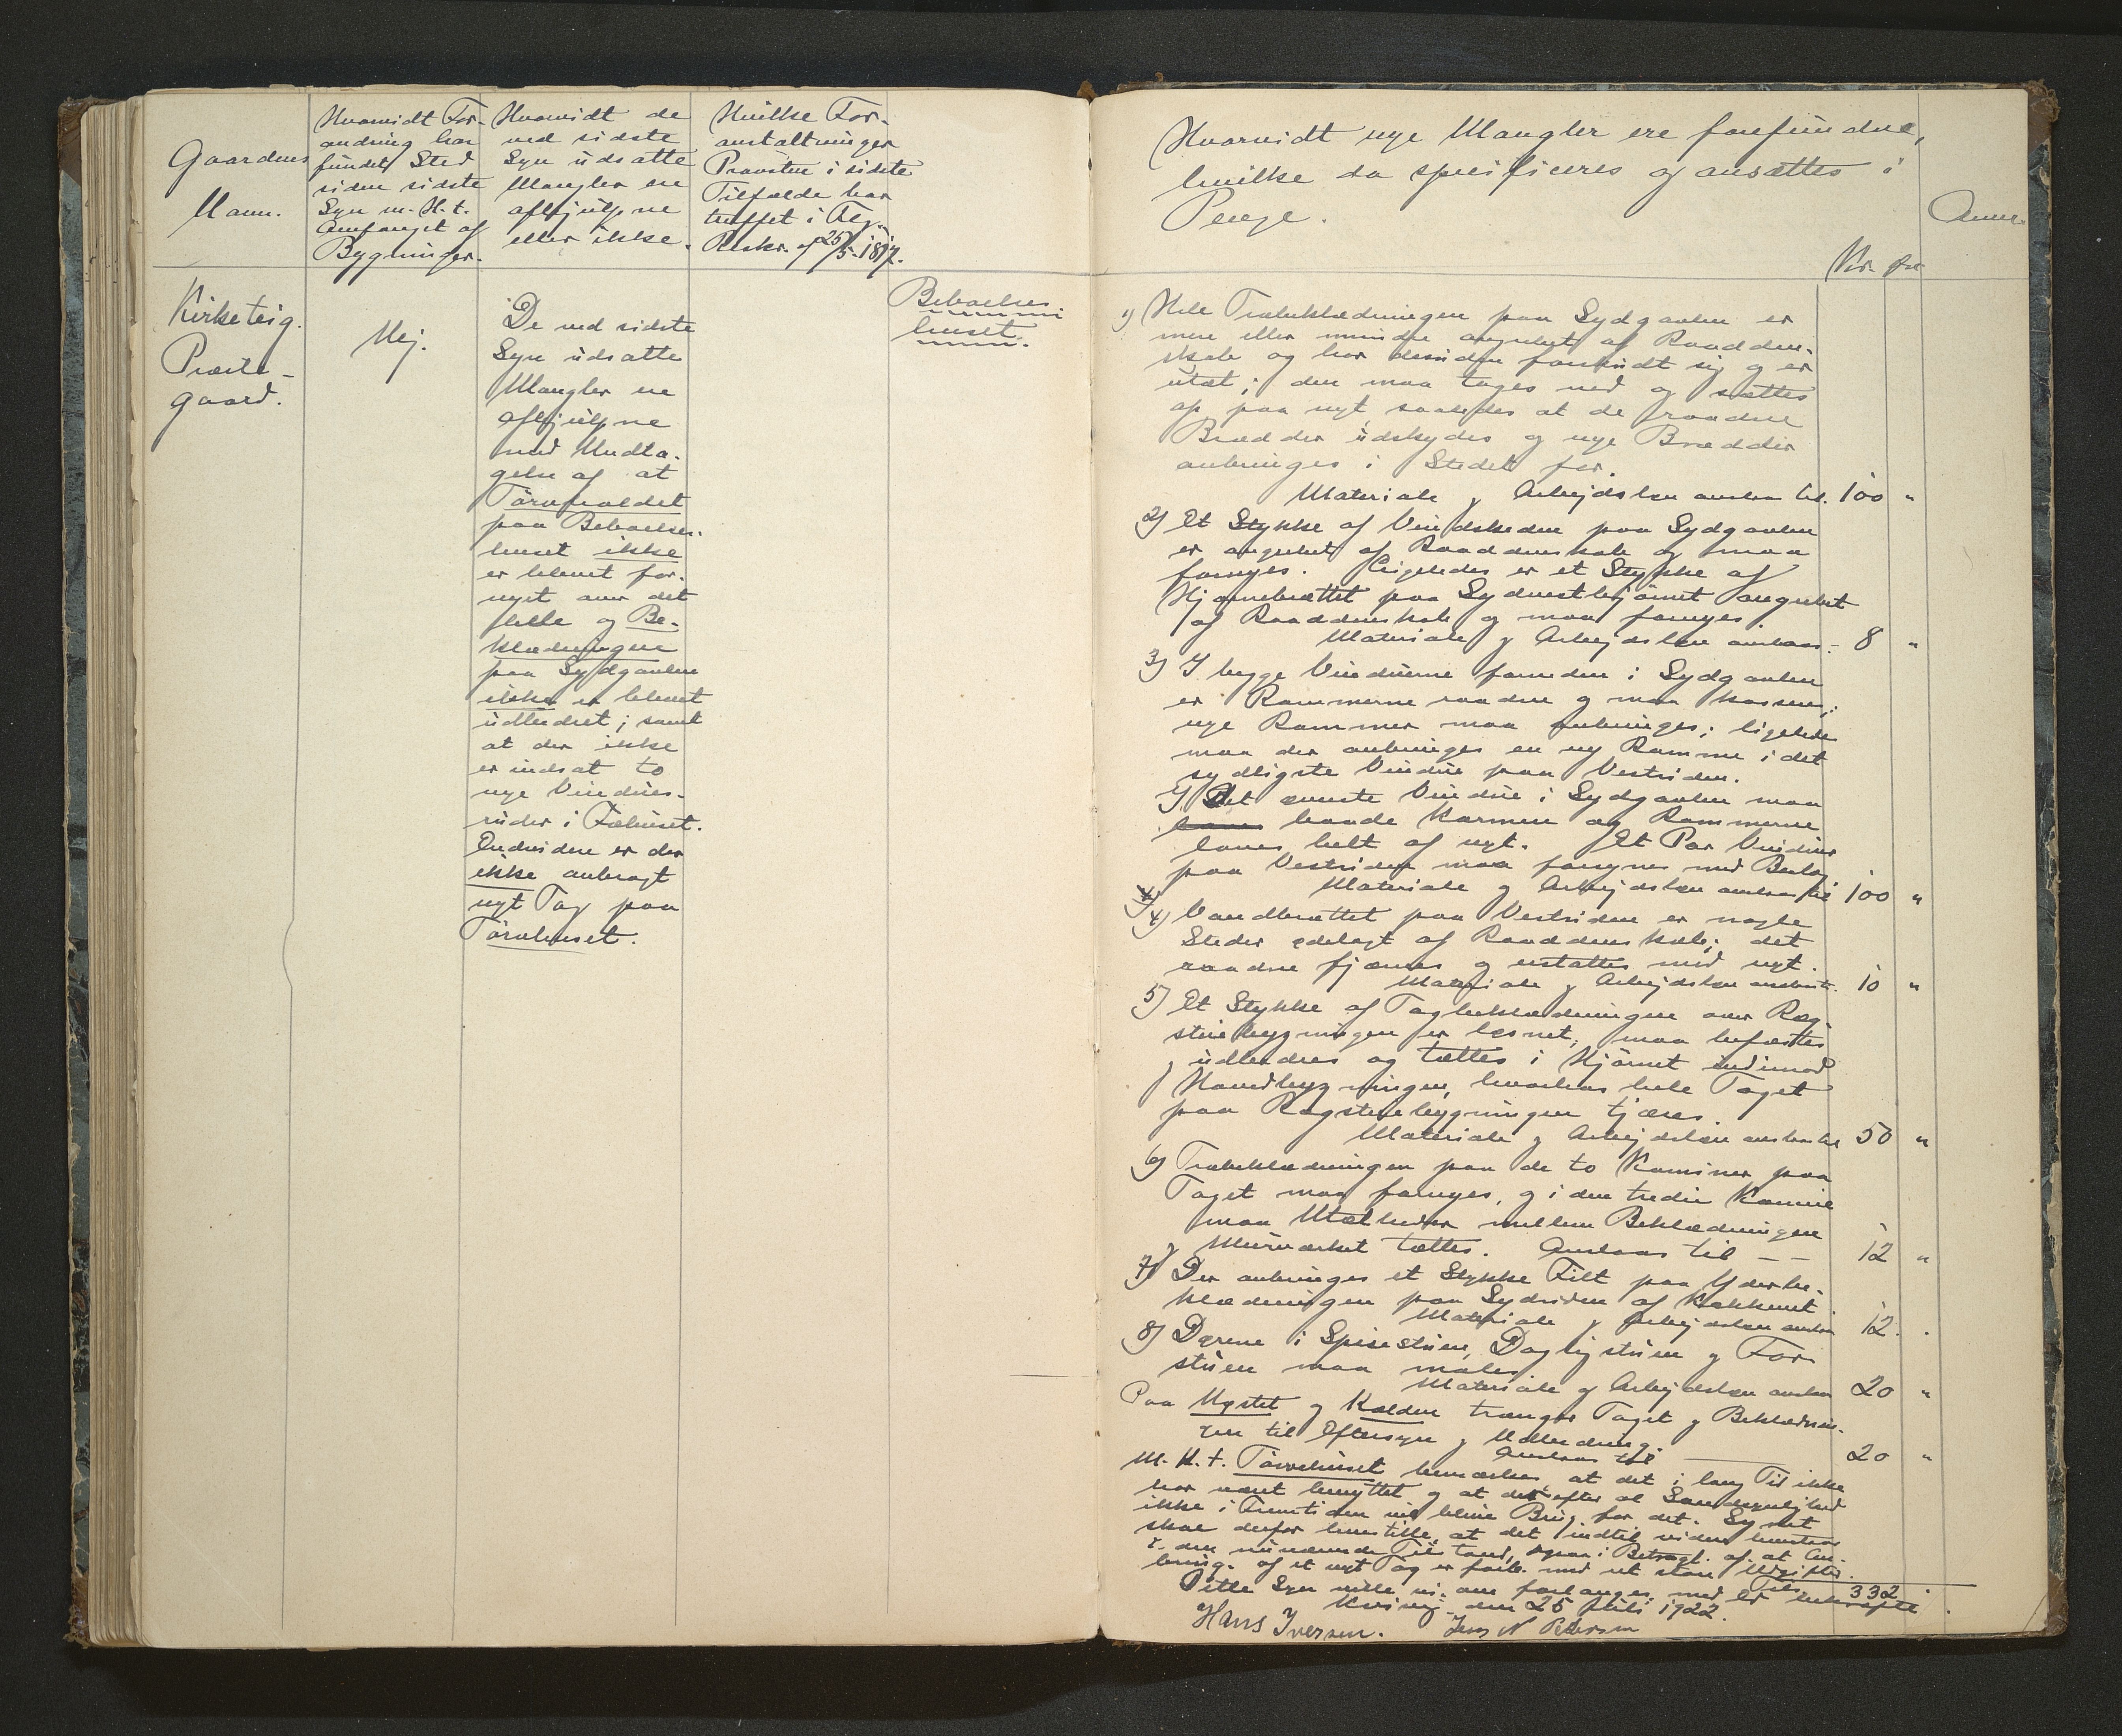 Gaardens
Navn.
Hvorvidt For-
andring har
fundet Sted
siden sidste
Syn m. H. t.
Omfanget af
Bygninger.
Hvorvidt de
ved sidste
Syn udsatte
Mangler ere
afhjulpne
eller ikke.
Hvilke For-
anstaltninger
Provsten i sidste
Tilfælde har
truffet i Flg.
Reskr. af 25/5-1812.
Kirketeig.
Præste-
gaard.
Nej.
De ved sidste
Syn udsatte
Mangler ere
afhjulpne
med Undta-
gelse af at
paa Beboelses-
huset ikke
er blevet for-
nyet over det
hele og Be-
klædningen
paa Sydgavlen
ikke er blevet
udbedret; samt
at der ikke
er indsat to
nye Vindues-
ruder i Fæhuset.
Endvidere er der
ikke anbragt
nyt Tag paa
Törvehuset.
Beboelses
huset.
Hvorvidt nye Mangler ere forefundne,
hvilke da specificeres og ansættes i
Penge.
Anm.
Kr. Øre
1) Hele Træbeklædningen paa Sydgavlen er
mere eller mindre angrebet af Raadden-
skab og har desuden forskudt sig og er
utæt; den maa tages ned og sættes
op paa nyt saaledes at de raadne
Brædder udskydes og nye Brædder
anbringes i Stedet for.
Materiale og Arbejdsløn anslaas til. 100 "
2) Et Stykke af Vindskeden paa Sydgavlen
er angrebet af Raaddenskab og maa
fornyes. Ligeledes er et Stykke af
Hjørnebrættet paa Sydvesthjörnet angrebet
af Raaddenskab og maa fornyes.
Materiale og Arbejdsløn anslaas - 8 "
3) I begge Vinduerne forneden i Sydgavlen
er Rammerne raadne og maa kasseres;
nye Rammer maa anbringes; ligeledes
maa der anbringes en ny Ramme i det
sydligste Vindue paa Vestsiden.
Det øverste Vindue i Sydgavlen maa
baade Karmen og Rammerne
laves helt af nyt. Et Par Vinduer
paa Vestsiden maa forsynes med Beslag.
Materiale og Arbejdsløn anslaas til 100 "
4) Vandbrættet paa Vestsiden er nogle
Steder ødelagt af Raaddenskab; det
raadne fjernes og erstattes med nyt.
Materiale og Arbejdsløn anslaas t. 10 "
5) Et Stykke af Tagbeklædningen over Røg-
stuebygningen er løsnet; maa befæstes
og udbedres og tættes i Hjörnet indimod
Hovedbygningen, hvorhos hele Taget
paa Røgstuebygningen tjæres.
Materiale og Arbejdsløn anslaas til 50 "
6) Træbeklædningen paa de to Kaminer paa
Taget maa fornyes, og i den tredie Kamin
maa Utætheder mellem Beklædningen
og Murværket tættes. Anslaas til — — 12 "
7) Der anbringes et Stykke Filt paa Yderbe-
klædningen paa Sydsiden af Køkkenet.
Materiale og Arbejdsløn anslaas 12 .
8) Dørene i Spisestuen, Dagligstuen og For-
stuen maa males
Materiale og Arbejdsløn anslaas 20 "
Paa og Kælderen trænger Taget og Beklædnin-
gen til Eftersyn og Udbedring.
Anslaas til — 20 "
M. H. t. Törvehuset bemærkes, at det i lang Tid ikke
har været benyttet og at der efter al Sandsynlighed
ikke i Fremtiden vil blive Brug for det. Synet
skal derfor henstille, at det indtil videre henstaar
i den nuværende Tilstand, ogsaa i Betragt. af at An-
bring. af et nyt Tag er forb. med ret store Udgifter.
Tils. 332 .
Dette Syn ville vi om forlanges med Ed bekræfte
Kvivig den 25 Juli 1922.
Hans Iversen. Jens N Petersen